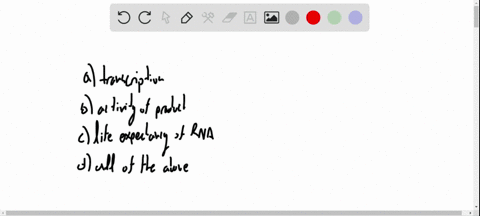 a) transcription
b) activity of product
c) life expectancy of RNA
d) all of the above